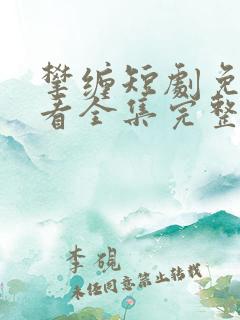 攀缠短劇免
看全集完整
李硯
未经同意禁止转载